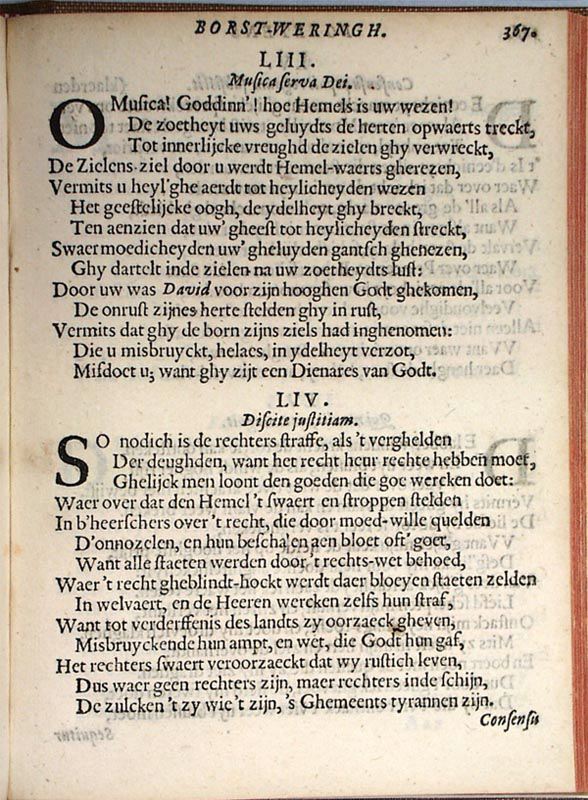 BORST-WERINGH. 367.
LIII.
Musica serva Dei.
O Musica! Goddinn'! hoe Hemels is uw wezen!
De zoetheyt uws geluydts de herten opwaerts treckt,
Tot innerlijcke vreughd de zielen ghy verwreckt,
De Zielens ziel door u werdt Hemel-waerts gherezen,
Vermits u heyl'ghe aerdt tot heylicheyden wezen
Het geestelijcke oogh, de ydelheyt ghy breckt,
Ten aenzien dat uw' gheest tot heylicheyden streckt,
Swaermoedicheyden uw' gheluyden gantsch ghenezen,
Ghy dartelt inde zielen na uw zoetheydts lust:
Door uw was David voor zijn hooghen Godt ghekomen,
De onrust zijnes herte stelden ghy in rust,
Vermits dat ghy de born zijns ziels had inghenomen:
Die u misbruyckt, helaes, in ydelheyt verzot,
Misdoet u; want ghy zijt een Dienares van Godt.
LIV.
Discite justitiam.
SO nodich is de rechters straffe, als 't verghelden
Der deughden, want het recht heur rechte hebben moet,
Ghelijck men loont den goeden die goe wercken doet:
Waer over dat den Hemel 't swaert en stroppen stelden
In b'heerschers over 't recht, die door moed-wille quelden
D'onnozelen, en hun beschaên aen bloet oft' goet,
Want alle staeten werden door 't rechts-wet behoed,
Waer 't recht gheblindt-hockt werdt daer bloeyen staeten zelden
In welvaert, en de Heeren wercken zelfs hun straf,
Want tot verderffenis des landts zy oorzaeck gheven,
Misbruyckende hun ampt, en wet, die Godt hun gaf,
Het rechters swaert veroorzaeckt dat wy rustich leven,
Dus waer geen rechters zijn, maer rechters inde schijn,
De zulcken 't zy wie 't zijn, 's Ghemeents tyrannen zijn.
Consensu